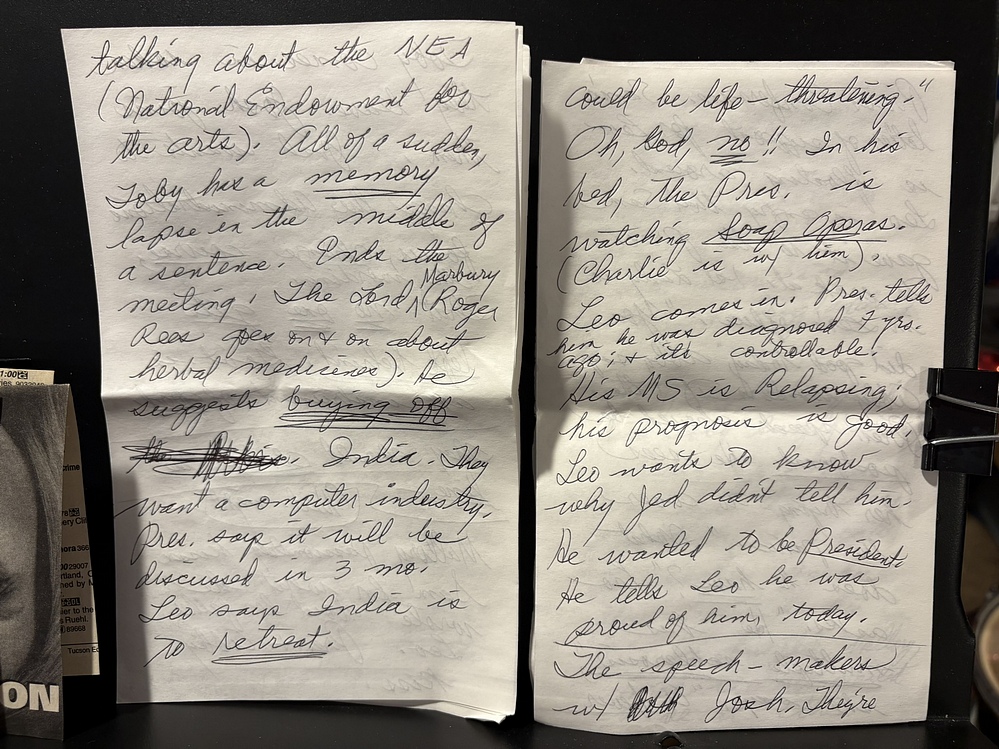 talking about the NEA
(National Endowment for
the arts). All of a sudden,
Toby has a memory
lapse in the middle of
a sentence. Ends the
Marbury
meeting. The Lord (Roger
Rees goes on & on about
herbal medicines). He
suggests buying off
the India. They
want a computer industry.
Pres. says it will be
discussed in 3 mo.
Leo says India is
to retreat.
could be life-threatening."
Oh, God, no!! In his
bed, the Pres. is
watching Soap Operas.
(Charlie is w/ him).
Leo comes in. Pres. tells
him he was diagnosed 7 yrs.
ago; & its controllable.
His MS is Relapsing;
his prognosis is good.
Leo wants to know
why Jed didn't tell him.
He wanted to be President.
He tells Leo he was
proud of him, today.
The speech-makers
w/ Josh. They're
1:00
crime
ery Cli
ora 366
29007
rtland, C
ned by M
ier to the
Ruehl.
69668
Tucson Ed
ON